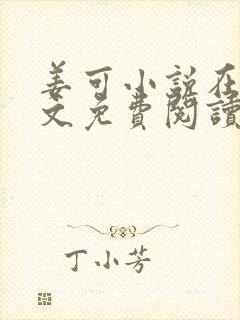 姜可小说在
文免費閱讀
丁小芳